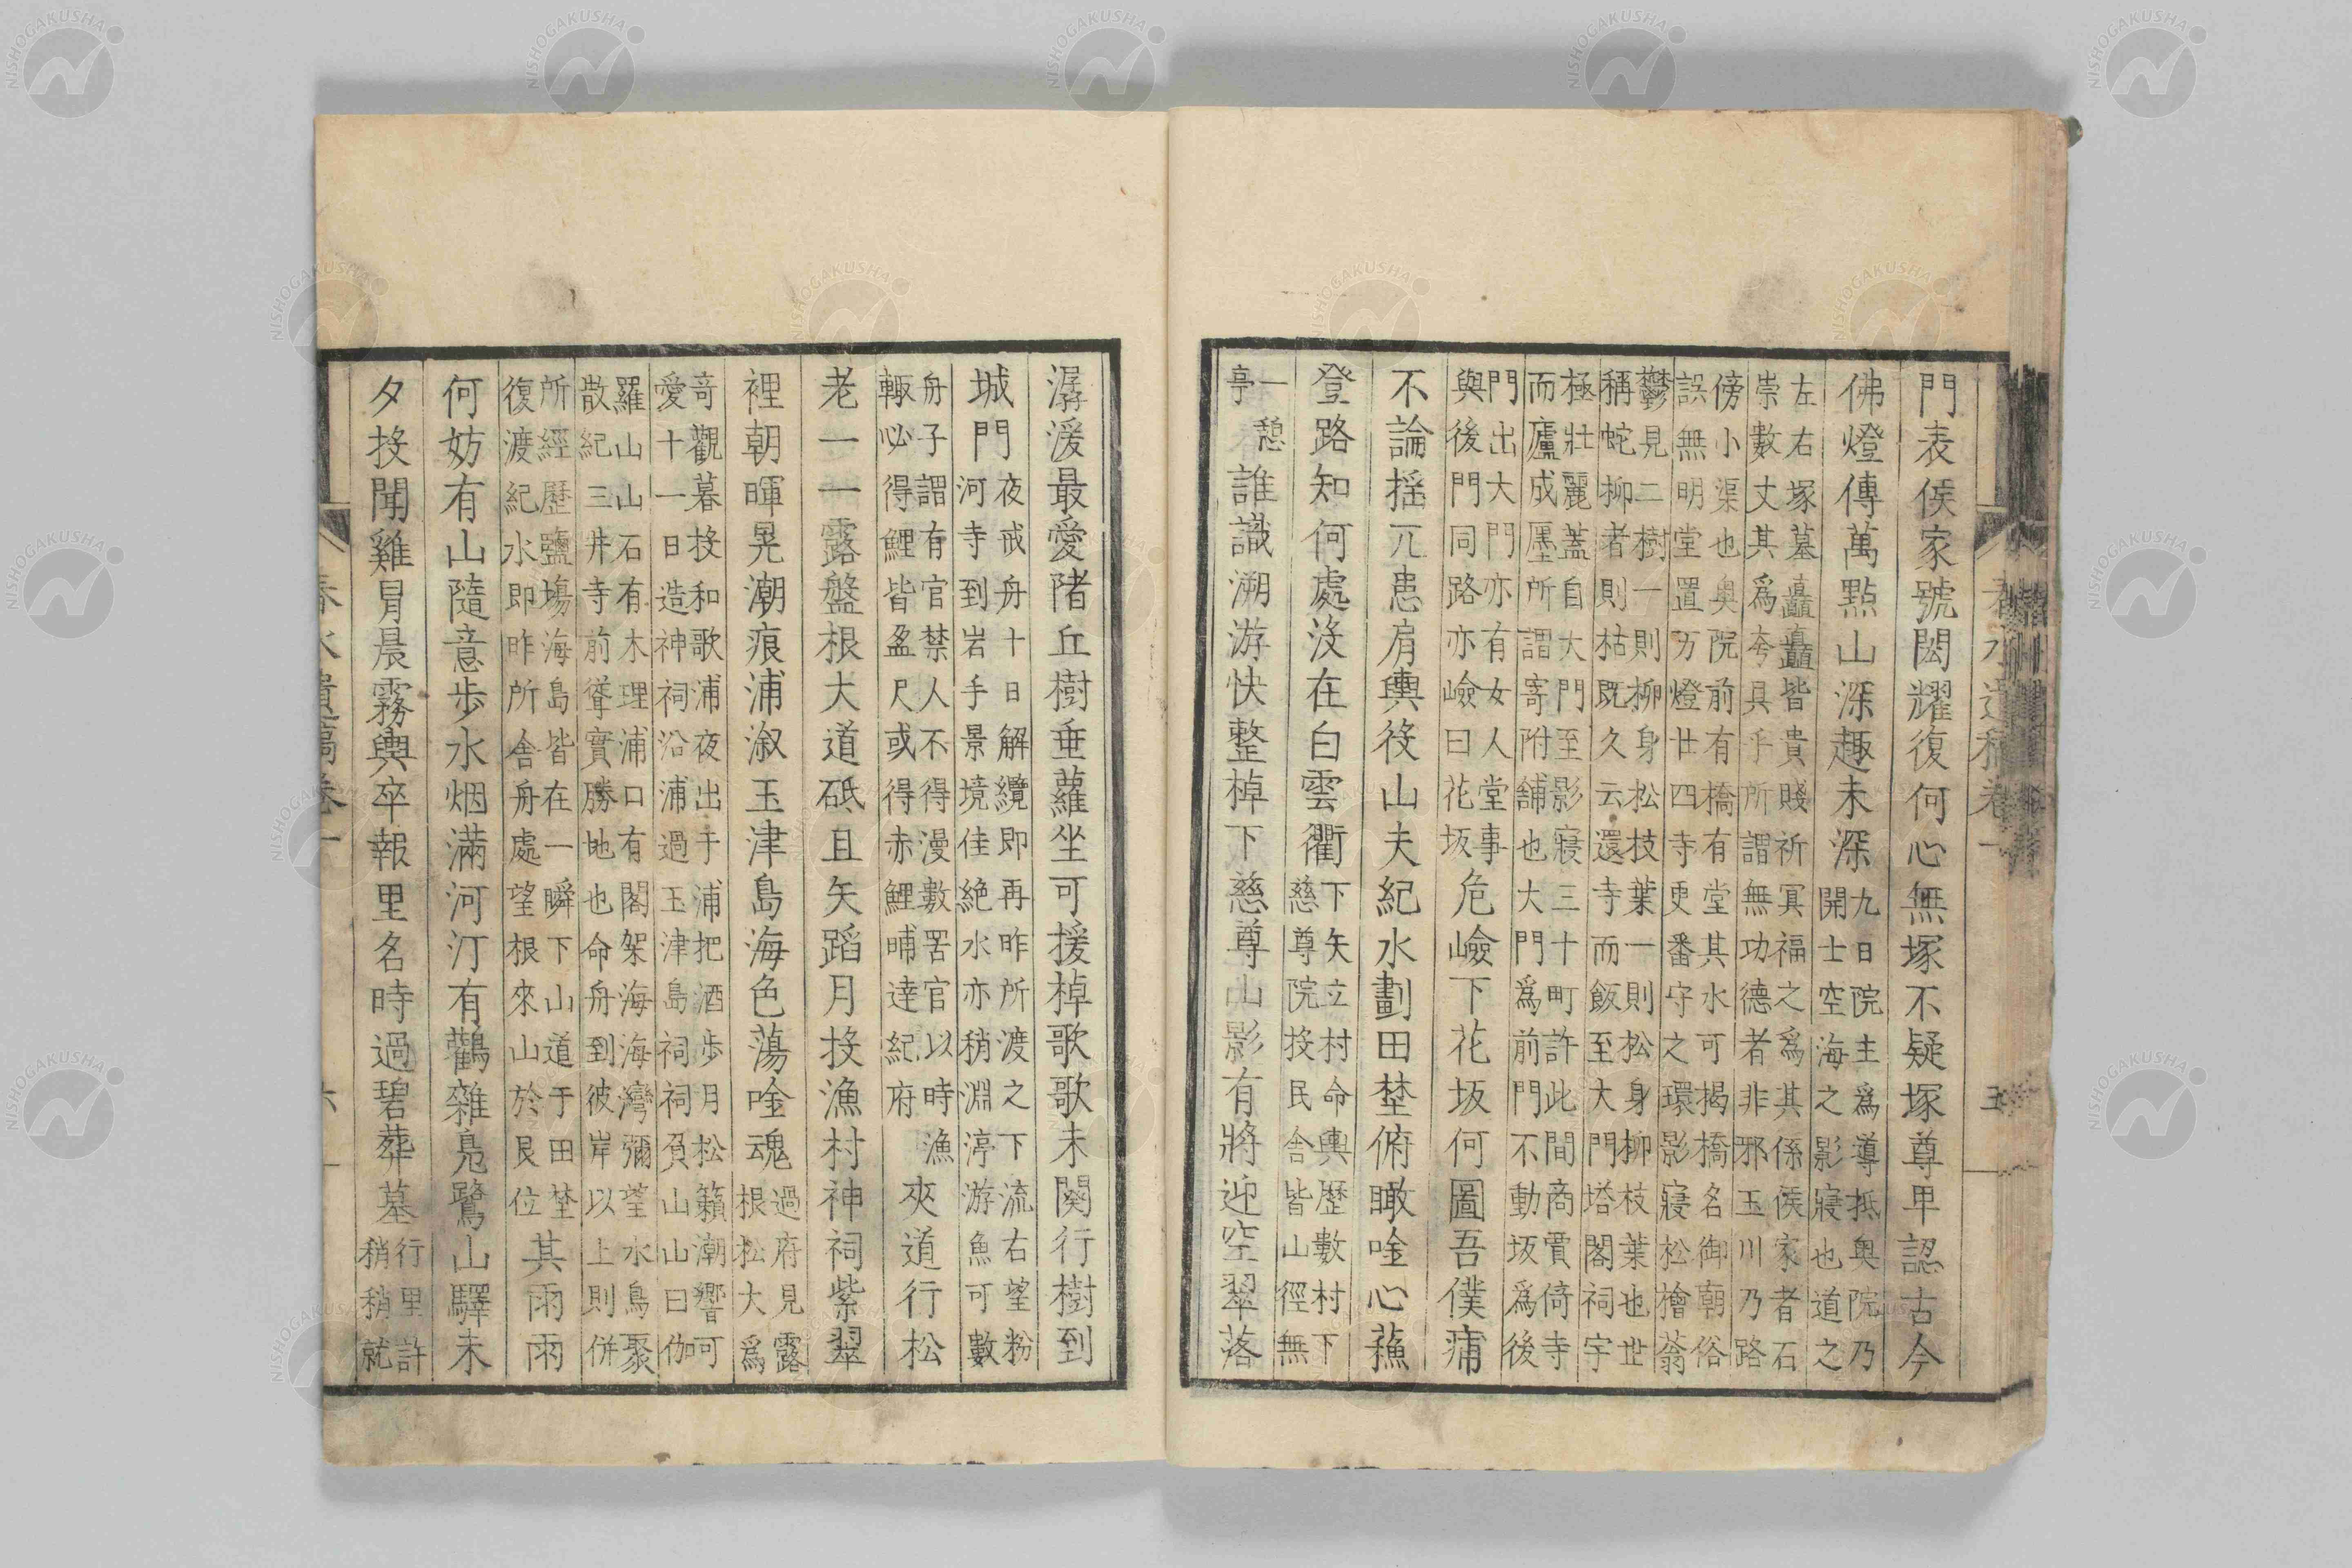 門表侯家號閥耀復何心無塚不疑塚尊卑認古今
佛燈傳萬點山深趣未深九日院主爲導抵奥院乃
開士空海之影寢也道之
左右塚墓矗矗皆貴賤祈冥福之爲其係侯家者石
崇數丈其爲夸具乎所謂無功德者非邪玉川乃路
傍小渠也奥院前有橋有堂其水可掲橋名御朝俗
誤無明堂置万燈廿四寺更番守之環影寢松檜蓊
鬱見二樹一則柳身松枝葉一則松身柳枝葉也世
稱蛇柳者則枯既久云還寺而飯至大門塔閣祠宇
極壯麗蓋自大門至影寢三十町許此間商賈倚寺
而廬成廛所謂寄附舗也大門爲前門不動坂爲後
門出大門亦有女人堂事
與後門同路亦嶮曰花坂危嶮下花坂何圖吾僕痡
不論揺兀患肩輿役山夫紀水劃田埜俯瞰唫心蘓
登路知何處没在白雲衢下矢立村命輿歴數村下
慈尊院投民舎皆山徑無
一憩
亭誰識溯游快整棹下慈尊山影有將迎空翠落
潺湲最愛陼丘樹垂蘿坐可援棹歌歌未闋行樹到
城門夜戒舟十日解纜即再昨所渡之下流右望粉
河寺到岩手景境佳絶水亦稍淵渟游魚可數
舟子謂有官禁人不得漫數罟官以時漁
輙必得鯉皆盈尺或得赤鯉晡達紀府夾道行松
老一一露盤根大道砥且矢蹈月投漁村神祠紫翠
裡朝暉晃潮痕浦溆玉津島海色蕩唫魂過府見露
根松大爲
奇觀暮投和歌浦夜出于浦把酒歩月松籟潮響可
愛十一日造神祠沿浦過玉津島祠祠負山山曰伽
羅山山石有木理浦口有閣架海海灣彌望水鳥聚
散紀三井寺前聳實勝地也命舟到彼岸以上則併
所經歴鹽塲海島皆在一瞬下山道于田埜
復渡紀水即昨所舎舟處望根來山於艮位其雨雨
何妨有山隨意歩水烟滿河汀有鸛雜鳧鷺山驛未
夕投聞雞冒晨霧輿卒報里名時過碧葬墓行里許
稍稍就